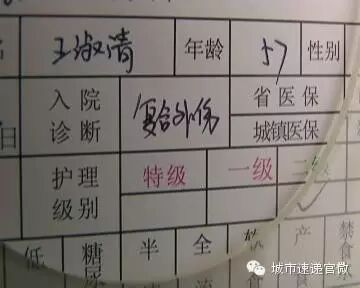 王淑清 年龄 57 性别
入院诊断 复合外伤 省医保
城镇医保
日
护理级别 特级 一级 二级
低 糖尿 半 全 软 产 禁食
城市速递官微